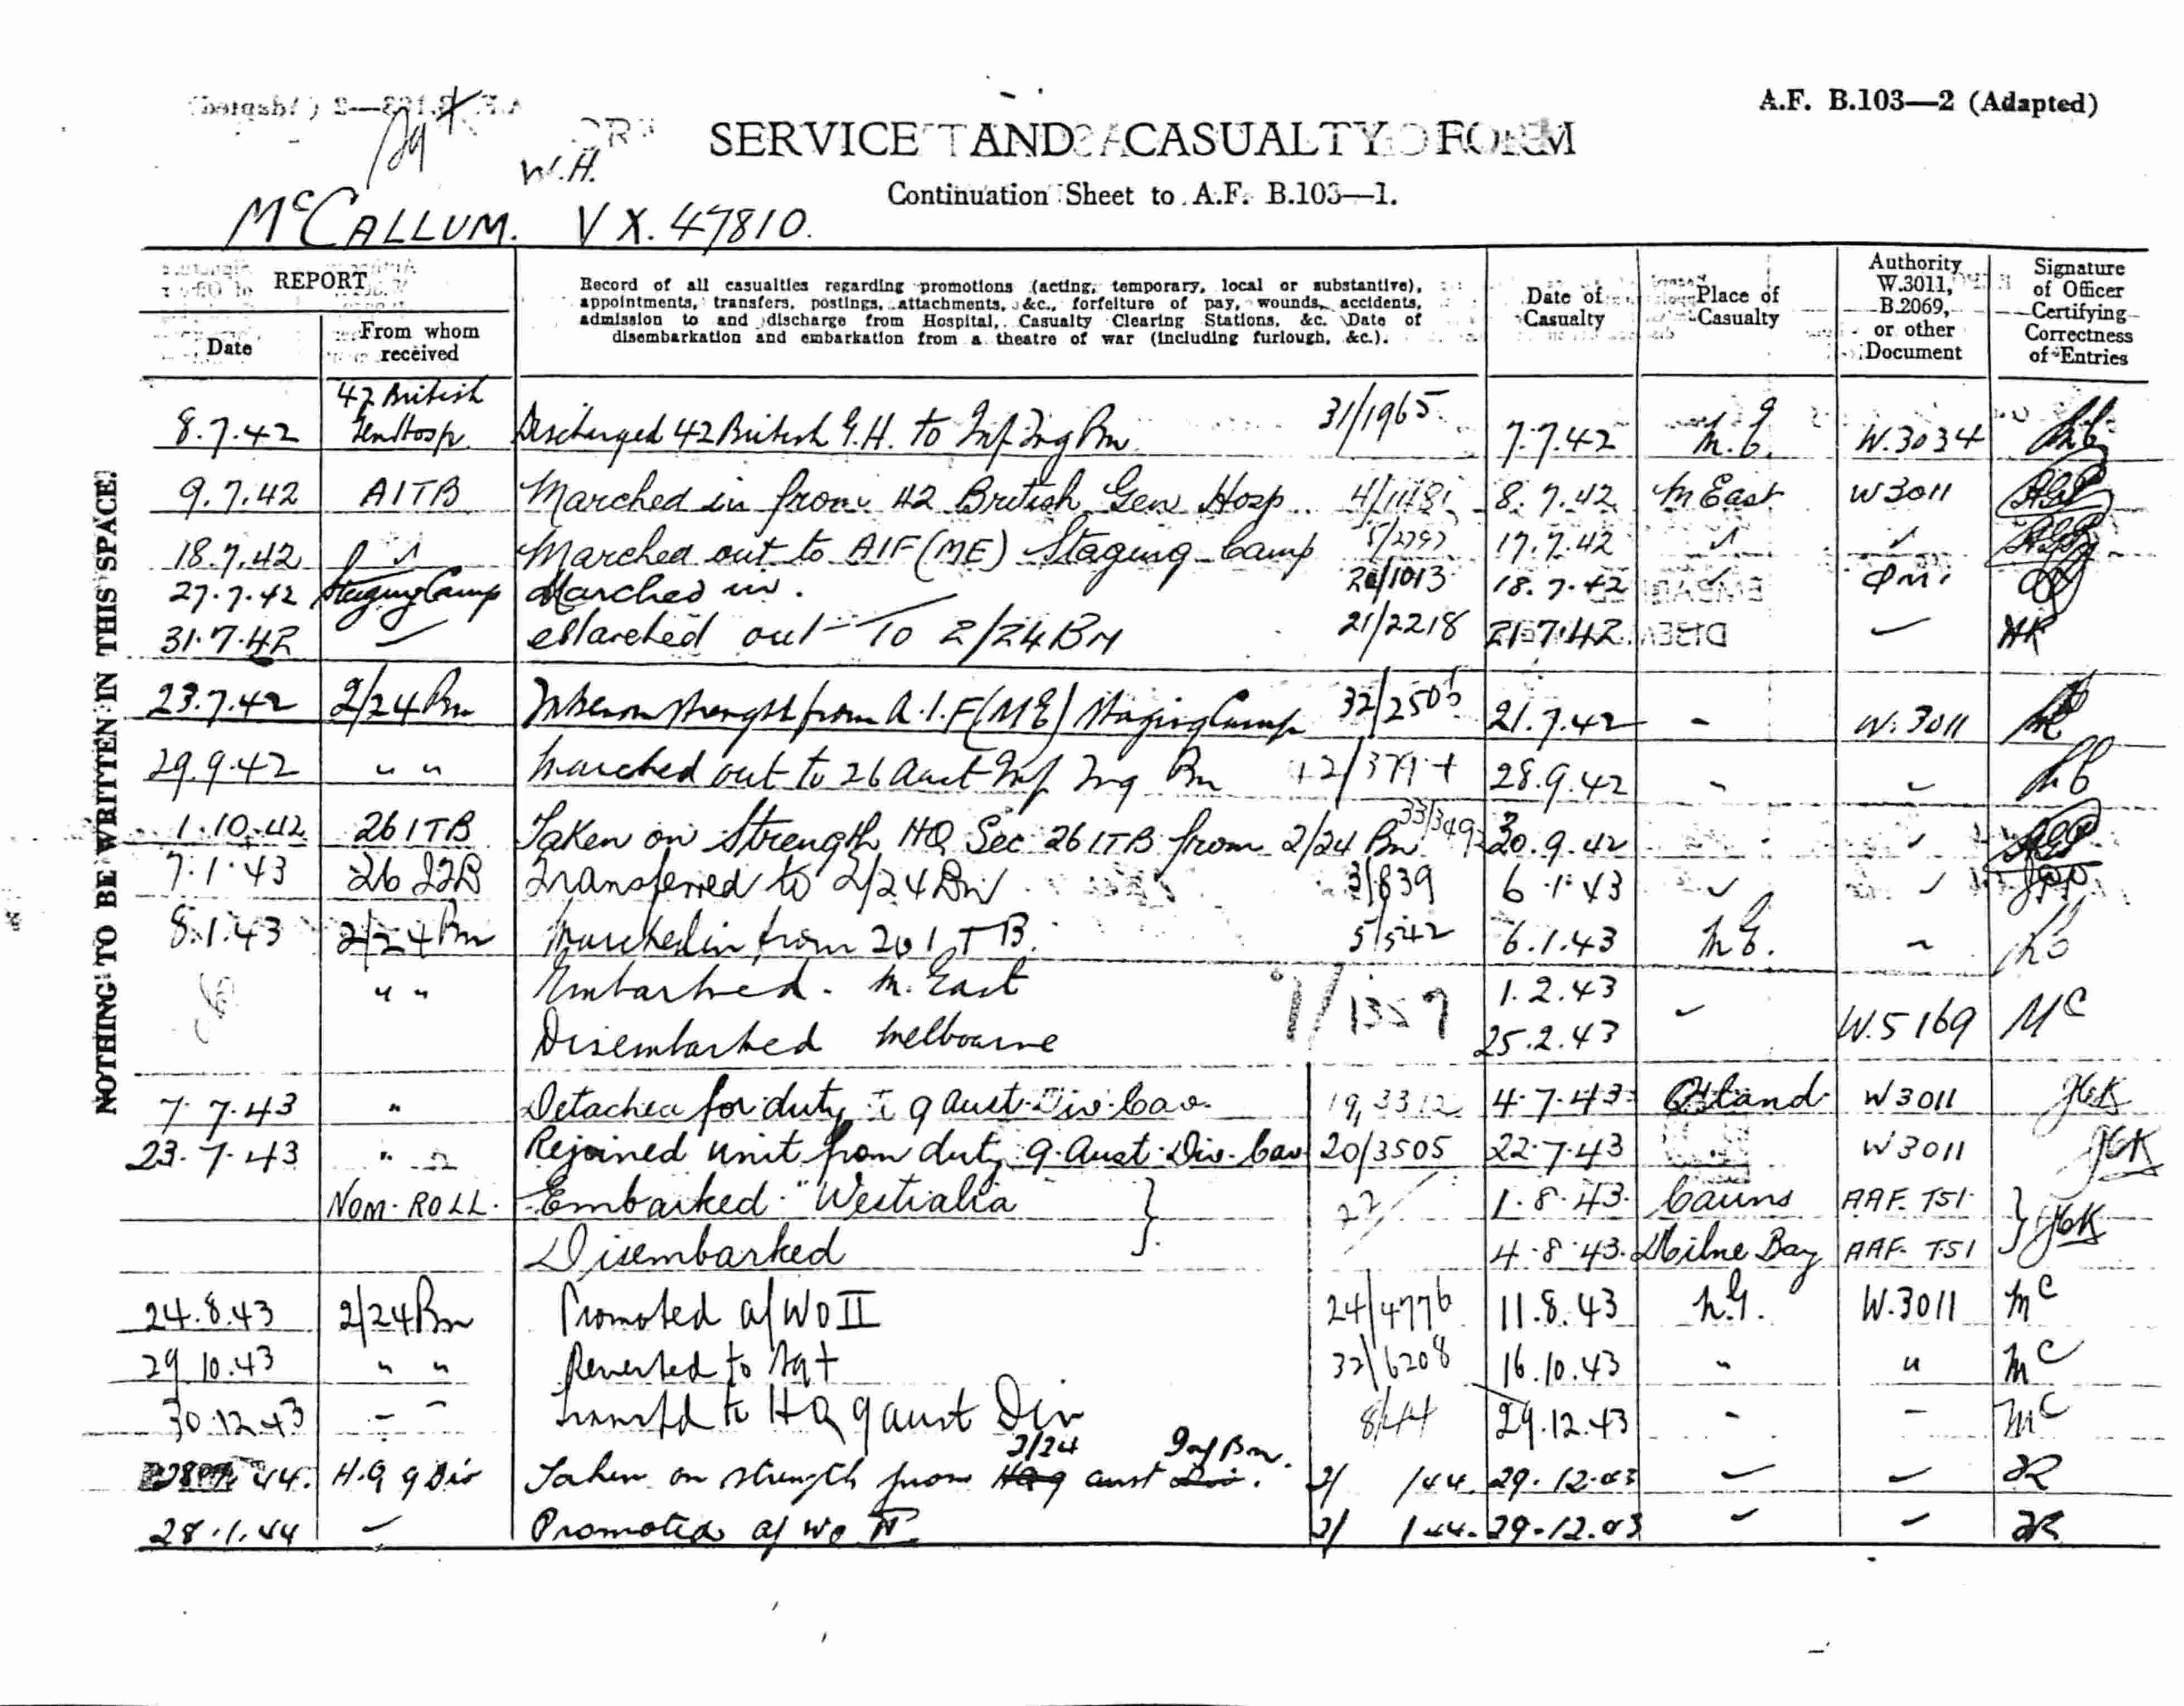 A.F. B.103—2 (Adapted)
Sgt
SERVICE AND CASUALTY FORM
W.H.
Continuation Sheet to A.F. B.103—1.
McCALLUM. VX.47810.
REPORT
Date
From whom received
Record of all casualties regarding promotions (acting, temporary, local or substantive),
appointments, transfers, postings, attachments, &c., forfeiture of pay, wounds, accidents,
admission to and discharge from Hospital, Casualty Clearing Stations, &c. Date of
disembarkation and embarkation from a theatre of war (including furlough, &c.).
Date of Casualty
Place of Casualty
Authority W.3011, B.2069, or other Document
Signature of Officer Certifying Correctness of Entries
NOTHING TO BE WRITTEN IN THIS SPACE.
8.7.42 42 British Gen Hosp. Discharged 42 British G.H. to Inf Trg Bn 31/1965 7.7.42 M.E. W.3034
9.7.42 AITB Marched in from 42 British Gen Hosp 8.7.42 M East W3011
18.7.42 Marched out to AIF (ME) Staging Camp 17.7.42
27.7.42 Staging Camp Marched in. 20/1013 18.7.42
31.7.42 Marched out To 2/24 Bn 21/2218 21.7.42
23.7.42 2/24 Bn Taken on strength from A.I.F (ME) Staging Camp 21.7.42 - W.3011
29.9.42 " " Marched out to 26 Aust Inf Trg Bn 28.9.42
1.10.42 26 ITB Taken on Strength HQ Sec 26 ITB from 2/24 Bn 30.9.42
7.1.43 26 ITB Transferred to 2/24 Bn 3/839 6.1.43
8.1.43 2/24 Bn Marched in from 26 ITB. 5/542 6.1.43 M.E.
" " Embarked. M. East 1.2.43
Disembarked Melbourne 25.2.43 W.5169 Mc
7.7.43 " Detached for duty 9 Aust. Div. Cav. 19/3312 4.7.43 Q'land W3011
23.7.43 " " Rejoined unit from duty 9. Aust. Div. Cav 20/3505 22.7.43 W3011
NOM. ROLL. Embarked "Westralia" 1.8.43. Cairns AAF. T51
Disembarked 4.8.43. Milne Bay AAF. T51
24.8.43 2/24 Bn Promoted a/WO II 24/4776 11.8.43 N.G. W.3011 Mc
29.10.43 " " Reverted to Sgt 32/6208 16.10.43 " " Mc
30.12.43 Transfd to HQ 9 Aust Div 8/44 29.12.43 Mc
44. H.Q 9 Div Taken on strength from 2/24 Aust Inf Bn. 2/ /44. 29.12.43
28.1.44 Promoted a/ WO II. 2/ /44. 29.12.43